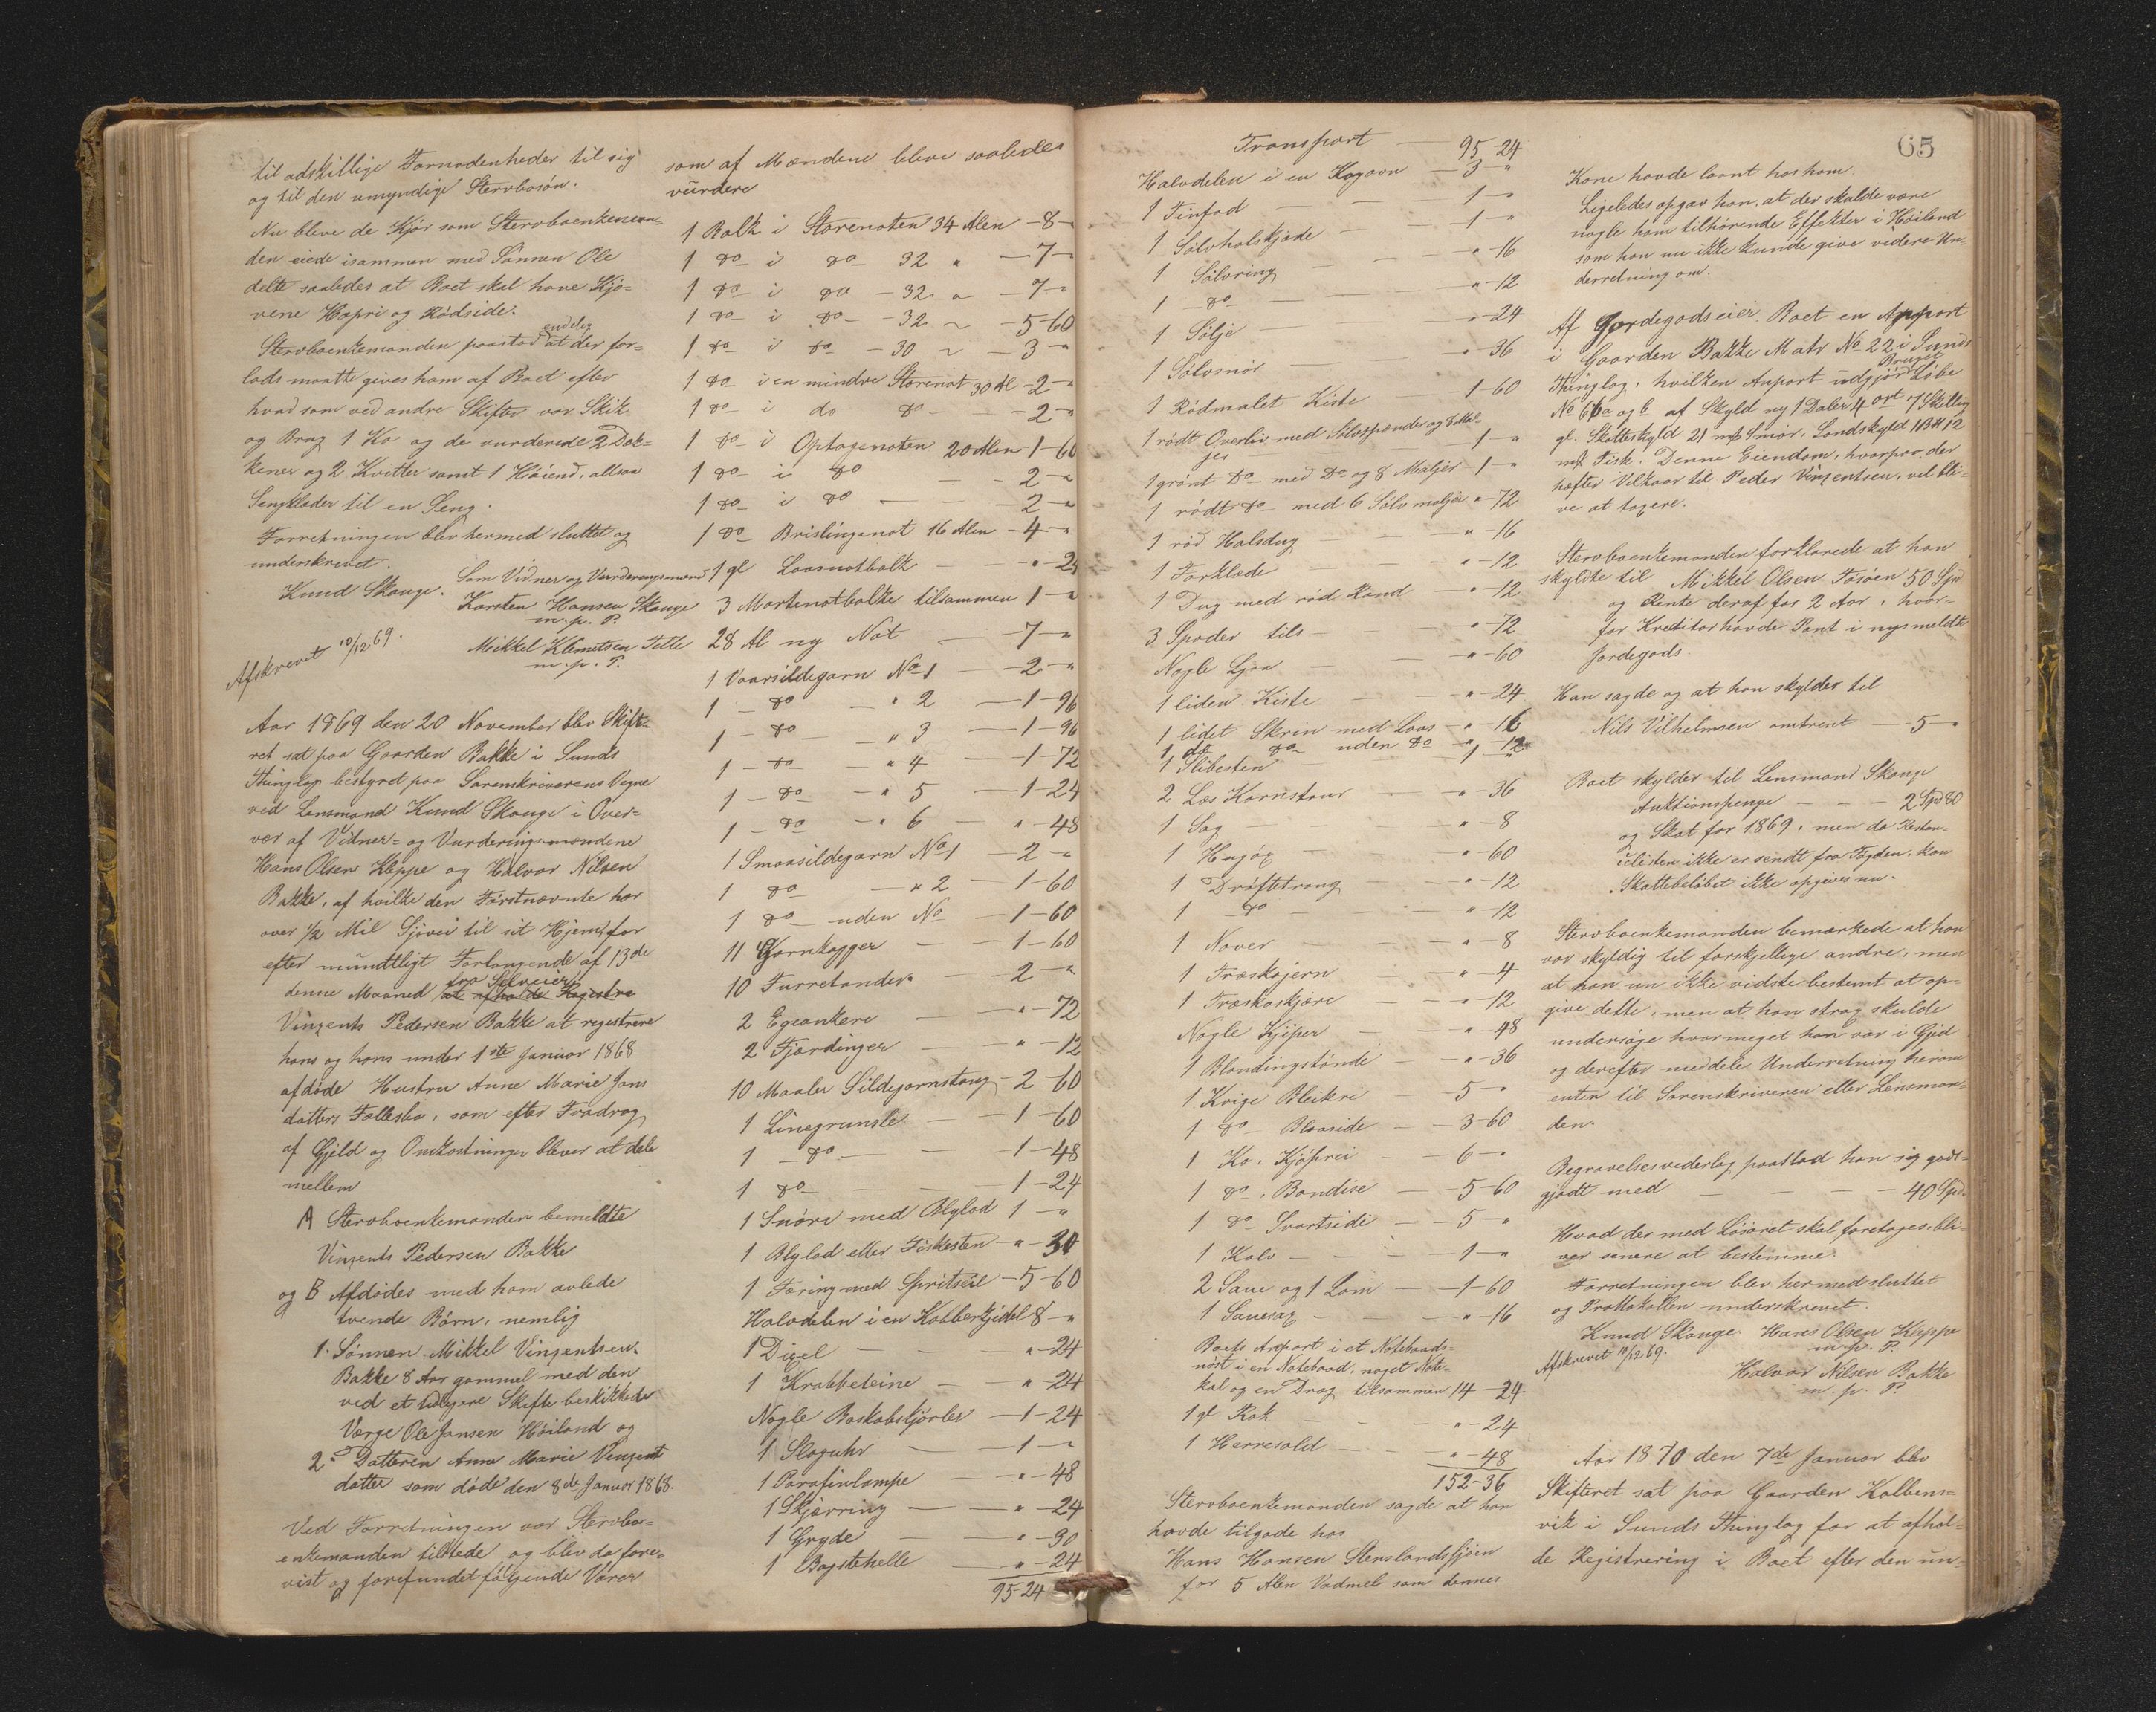 til adskillige Fornødenheder til sig
og til den umyndige Stervbosøn.
Nu bleve de Kjør som Stervboenkeman-
den eiede isammen med Sønnen Ole
delte saaledes at Boet skal have Kjø-
rene Hopri og Rødside.
Stervboenkemanden paastod endelig at der for-
lods maatte gives ham af Boet efter
hvad som ved andre Skifter var Skik
og Brug 1 Ko og de vurderede 2 Dæk-
kener og 2 Kvitler samt 1 Høiend, altsaa
Sengklæder til en Seng.
Forretningen blev hermed sluttet og
underskrevet.
Knud Skauge. Som Vidner og Vurderingsmænd
Karsten Hansen Skauge
m. p. P.
Mikkel Klemetsen Telle
m. p. P.
Afskrevet 10/12 69.
Aar 1869 den 20 November blev Skifte-
ret sat paa Gaarden Bakke i Sunds
Thinglag bestyret paa Sorenskriverens Vegne
ved Lensmand Knud Skauge i Over-
vær af Vidner- og Vurderingsmændene
Hans Olsen Kleppe og Halvor Nilsen
Bakke, af hvilke den Førstnævnte har
over 1/2 Mil Sjøvei til sit Hjem, for
efter mundtligt Forlangende af 13de
denne Maaned fra Selveier at afholde Registre
Vinzents Pedersen Bakke at registrere
hans og hans under 1ste Januar 1868
afdøde Hustru Anne Marie Jans
datters Fællesbo, som efter Fradrag
af Gjeld og Omkostninger bliver at dele
mellem
A Stervboenkemanden bemeldte
Vinzents Pedersen Bakke
og B Afdødes med ham avlede
tvende Børn, nemlig
1. Sønnen Mikkel Vinzentsen
Bakke 8 Aar gammel med den
ved et tidligere Skifte beskikkede
Værge Ole Jansen Høiland og
2. Datteren Anne Marie Vinzents
datter som døde den 8de Januar 1868.
Ved Forretningen var Stervbo-
enkemanden tilstede og blev da fore-
vist og forefundet følgende Varer
som af Mændene bleve saaledes
vurdere
1 Balk i Storenoten 34 Alen - 8 -
1 do i do 32 " - 7 -
1 do i do - 32 " - 7 -
1 do i do - 32 " - 5-60
1 do i do - 30 " - 3 -
1 do i en mindre Storenot 30 Al - 2 - "
1 do i do do - - 2 -
1 do i Optagenoten 20 Alen - 1-60
1 do i do - - 2 - "
1 do i do - - 2 - "
1 do Brislinganot 16 Alen - 4 - "
1 gl Laasnotbalk - - " - 24
3 Mortenotbalke tilsammen 1 - "
28 Al ny Not - 7 - "
1 Vaarsildegarn No 1 - 2 - "
1 - do - " 2 - 1-96
1 - do - " 3 - 1-96
1 - do - " 4 - 1-72
1 - do - " 5 - 1-24
1 - do - " 6 - " - 48
1 Smaasildegarn No 1 - 2 - "
1 do - " 2 - 1-60
1 do - uden No - 1-60
11 Garnkagger - 1-60
10 Furretønder - 2 - "
2 Egeankere - " - 72
2 Fjerdinger - " - 12
10 Maaler Sildegarnstoug - 2-60
1 Linegrunsle - 1-60
1 - do - - 1-48
1 do - 1-24
1 Snøre med Blylod 1 - "
1 Blylod eller Fiskesten - " - 30
1 Færing med Spritseil - 5-60
Halvdelen i en Kobberkjedel 8 - "
1 Dixel - " - 24
1 Krabbeteine - " - 24
Nogle Baskabskjørler - 1-24
1 Slaguhr - 1 - "
1 Parafinlampe - " - 48
1 Skjærring - " - 24
1 Gryde - " - 90
1 Bagstehelle - " - 24
95-24
65
Transport - 95-24
Halvdelen i en Kogovn - 3 - "
1 Tinfad - - 1 - "
1 Sølvhalskjæde - - 1 - "
1 Sølvring - - " - 16
1 do - - " - 12
1 Sølje - " - 24
1 Sølvsnør - " - 36
1 Rødmalet Kiste - 1-60
1 rødt Overliv med Sølvspænder og
1 - "
1 grønt do - med do og 8 Maljer - 1 - "
1 rødt do - med 6 Sølvmaljer " - 72
1 rød Halsdug - " - 16
1 Forklæde - " - 12
1 Dug med rød Rand - " - 12
3 Spader tils - " - 72
Nogle Ljaa - " - 60
1 liden Kiste - " - 24
1 lidet Skrin med Laas - " - 16
1 do do uden do - " - 12
1 Slibesten - 1 - "
2 Læs Kornstaur - " - 36
1 Sag - " - 8
1 Hugøx - " - 60
1 Drøftetroug - " - 12
1 do - " - 12
1 Naver - " - 8
1 Træskojern - " - 4
1 Træskoskjære - " - 12
Nogle Kjiper - " - 48
1 Blandingstønde - " - 36
1 Kvige Bleikri - 5 - "
1 do Blaaside - 3-60
1 Ko, Kjøprei - 6 - "
1 do, Bondise - 5-60
1 do Svartside - 5 - "
1 Kalv - 1 - "
2 Saue og 1 Lam - 1-60
1 Sauesax - " - 16
Boets Anport i et Notebaads-
nøst i en Notebaad, noget Note-
kal og en Drag tilsammen 14-24
1 gl Rok - " - 24
1 Herresold - " - 48
152-36
Stervboenkemanden sagde at han
havde tilgode hos
Hans Hansen Steinslandssjøen
for 5 Alen Vadmel som dennes
Kone havde laant hos ham.
Ligeledes opgav han, at der skulde være
nogle ham tilhørende Effekter i Høiland
som han nu ikke kunde give videre Un-
derretning om.
Af Jordegods eier Boet en Anport
i Gaarden Bakke Matr No 22 i Sunds
Thinglag, hvilken Anport udgjør Bruget Løbe
No 66a og b af Skyld ny 1 Daler 4 ort 7 Skilling
gl. Skatteskyld 21 mk Smør, Landskyld 12
mk Fisk. Denne Eiendom, hvorpaa der
hefter Vilkaar til Peder Vinzentsen, vil bli-
ve at taxere.
Stervboenkemanden forklarede at han
skyldte til Mikkel Olsen Tøsøen 50 Spd
og Rente deraf for 2 Aar, hvor-
for Kreditor havde Pant i nysmeldte
Jordegods.
Han sagde og at han skylder til
Nils Vilhelmsen omtrent - 5 - "
Boet skylder til Lensmand Skauge
Auktionspenge - - - 2 Spd 80
og Skat for 1869, men da Restan-
celisten ikke er sendt fra Fogden, kan
Skattebeløbet ikke opgives nu.
Stervboenkemanden bemærkede at han
var skyldig til forskjellige andre, men
at han nu ikke vidste bestemt at op-
give dette, men at han strax skulde
undersøge hvor meget han var i Gjeld
og derefter meddele Underretning herom
enten til Sorenskriveren eller Lensman-
den.
Begravelsesvederlag paastod han sig godt-
gjødt med - - - - 40 Spd.
Hvad der med Løsøret skal foretages, bli-
ver senere at bestemme.
Forretningen blev hermed sluttet
og Prottokollen underskrevet.
Knud Skauge. Hans Olsen Kleppe
m. p. P.
Afskrevet 10/12 69.
Halvor Nilsen Bakke
m. p. P.
Aar 1870 den 7de Januar blev
Skifteret sat paa Gaarden Kalbens-
vik i Sunds Thinglag for at afhol-
de Registrering i Boet efter den un-